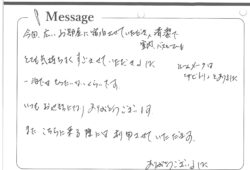 Message
今回、広い お部屋に 宿泊させていただき、清潔で
室内、バスルームも
とても気持ちよく すごさせて いただきました
ルームメークは
一泊では もったいない くらいです
いつも お世話になり ありがとうございます
また こちらに 来る際には 利用させていただきます。
ありがとうございました